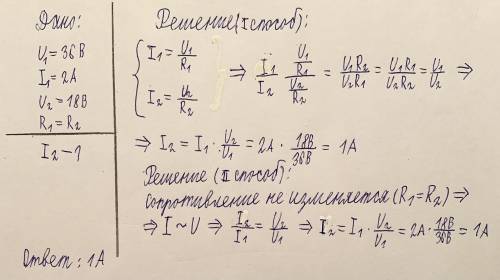 Дано:
U₁=36В
I₁=2А
U₂=18В
R₁=R₂
I₂-?
Ответ: 1А
Решение (I способ):
{ I₁ = U₁/R₁
I₂ = U₂/R₂ } ⇒ I₁/I₂ (U₁/R₁)/(U₂/R₂) = U₁R₂/U₂R₁ = U₁R₁/U₂R₂ = U₁/U₂ ⇒
⇒ I₂ = I₁ · U₂/U₁ = 2А · 18В/36В = 1А
Решение (II способ):
сопротивление не изменяется (R₁=R₂) ⇒
⇒ I ~ U ⇒ I₂/I₁ = U₂/U₁ ⇒ I₂ = I₁ · U₂/U₁ = 2А · 18В/36В = 1А